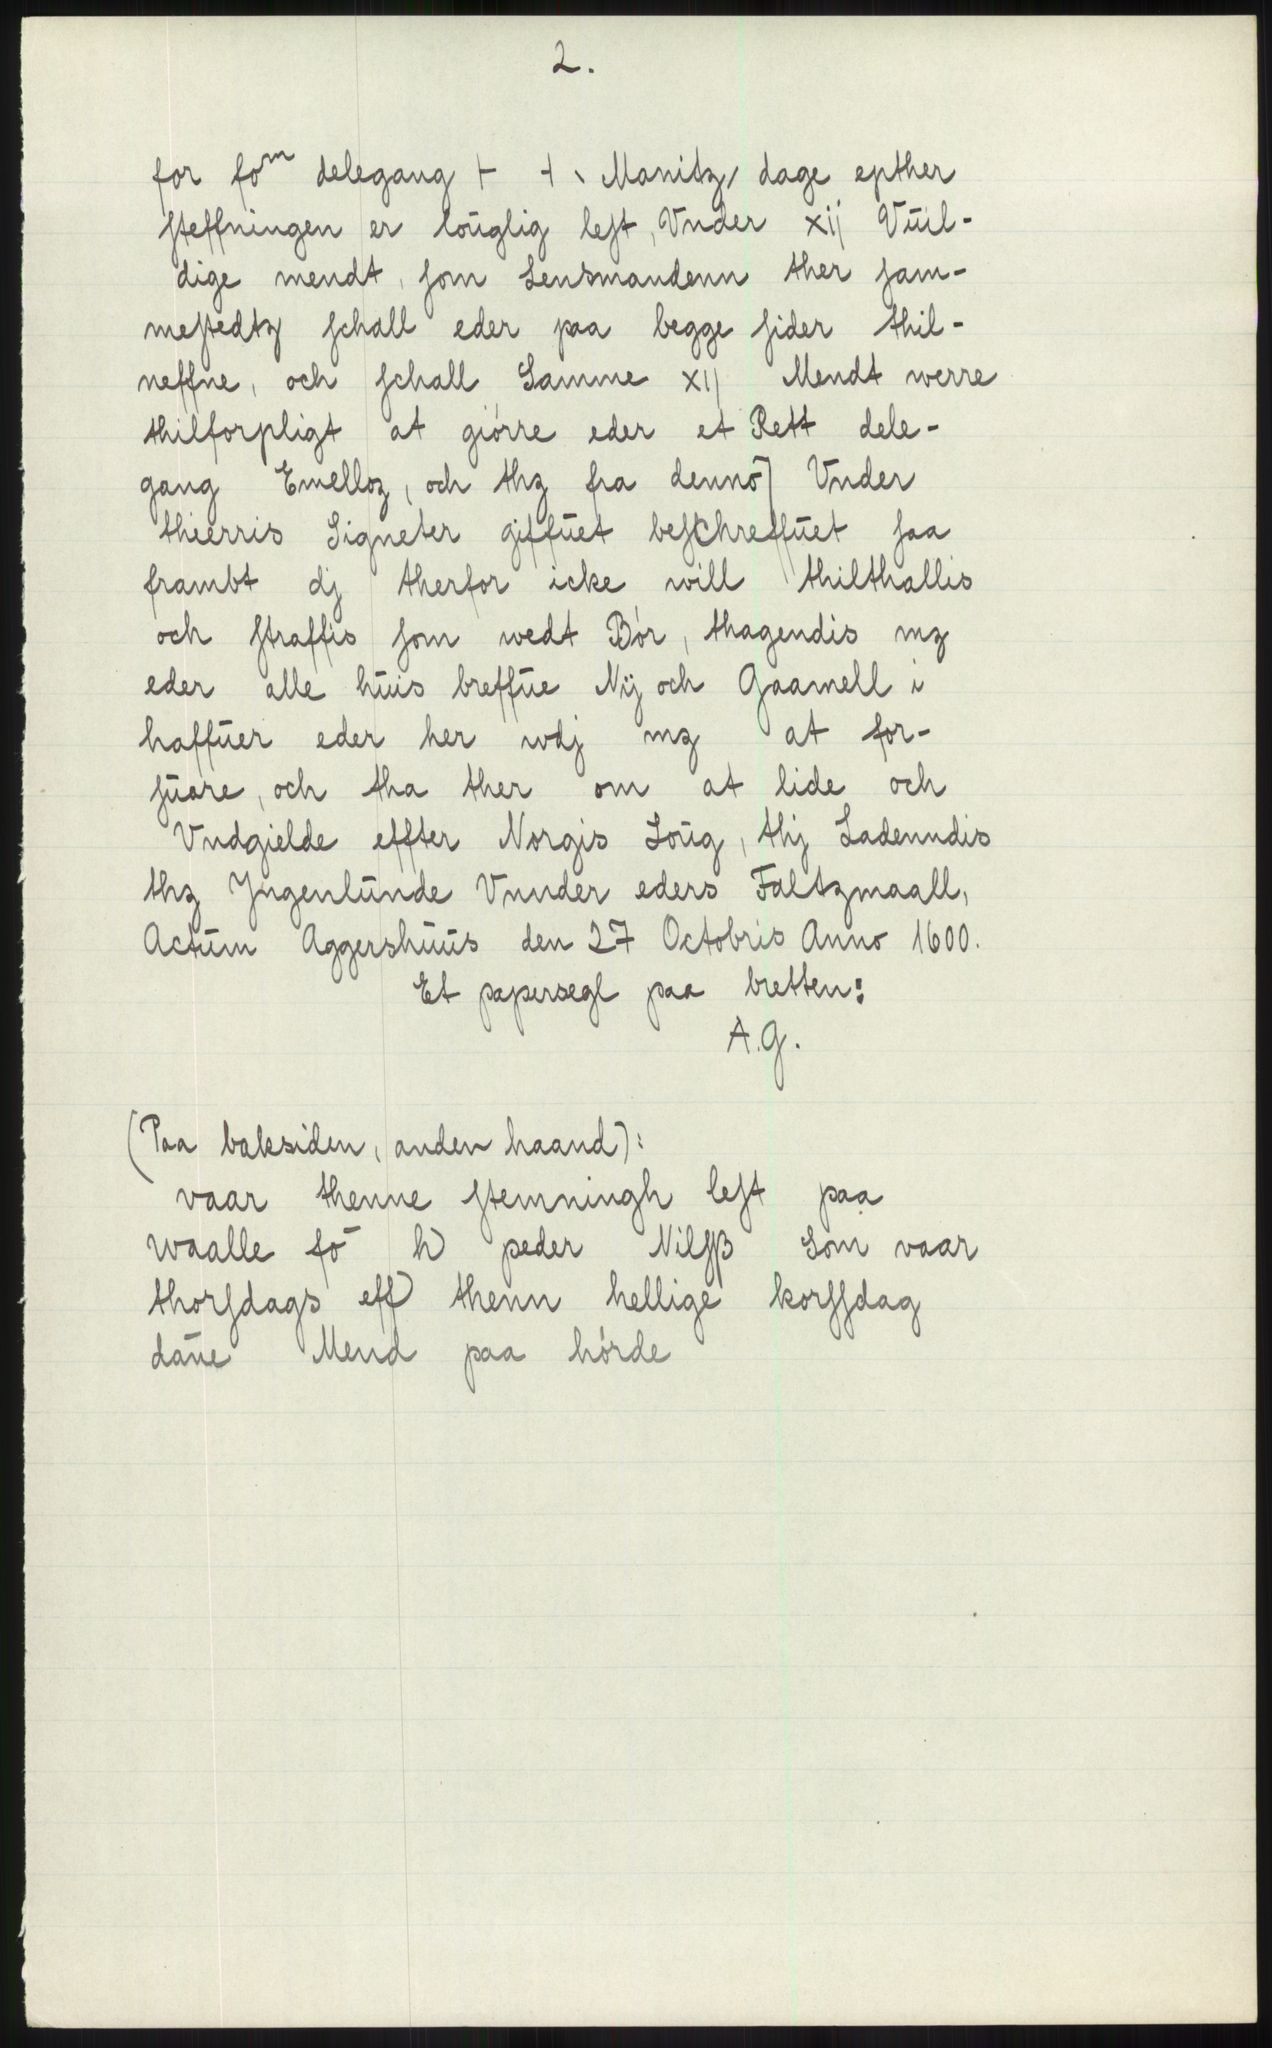 2.
for fo^m delegang + + \ Manitz / dage epther
ſteffningen er louglig leſt, Vnder xij Vuil-
dige mendt, ſom Lensmandenn ther ſam-
meſtedtz ſchall eder paa begge ſider thil-
neffne, och ſchall Samme xij Mendt werre
thilforpligt at giörre eder et Rett dele-
gang Emelloz, och thz fra dennō Vnder
thierris Signeter giffuet beſchreffuet ſaa
frambt dj therfor icke will thilthallis
och ſtraffis ſom wedt Bör, thagendis mz
eder alle huis breffue Nÿ och Gaamell i
haffuer eder her wdj mz at for-
ſuare, och tha ther om at lide och
Vndgielde effter Norgis Loug, thj Ladenndis
thz Jngenlunde Vnnder eders Faltzmaall,
Actum Aggershuus den 27 Octobris Anno 1600.
Et papersegl paa bretten:
A.G.
(Paa baksiden, anden haand):
vaar thenne ſtemningh leſt paa
waalle fō h peder Nilſβ Som vaar
thorſdags eff thenn hellige korſſdag
dāne Mend paa hörde